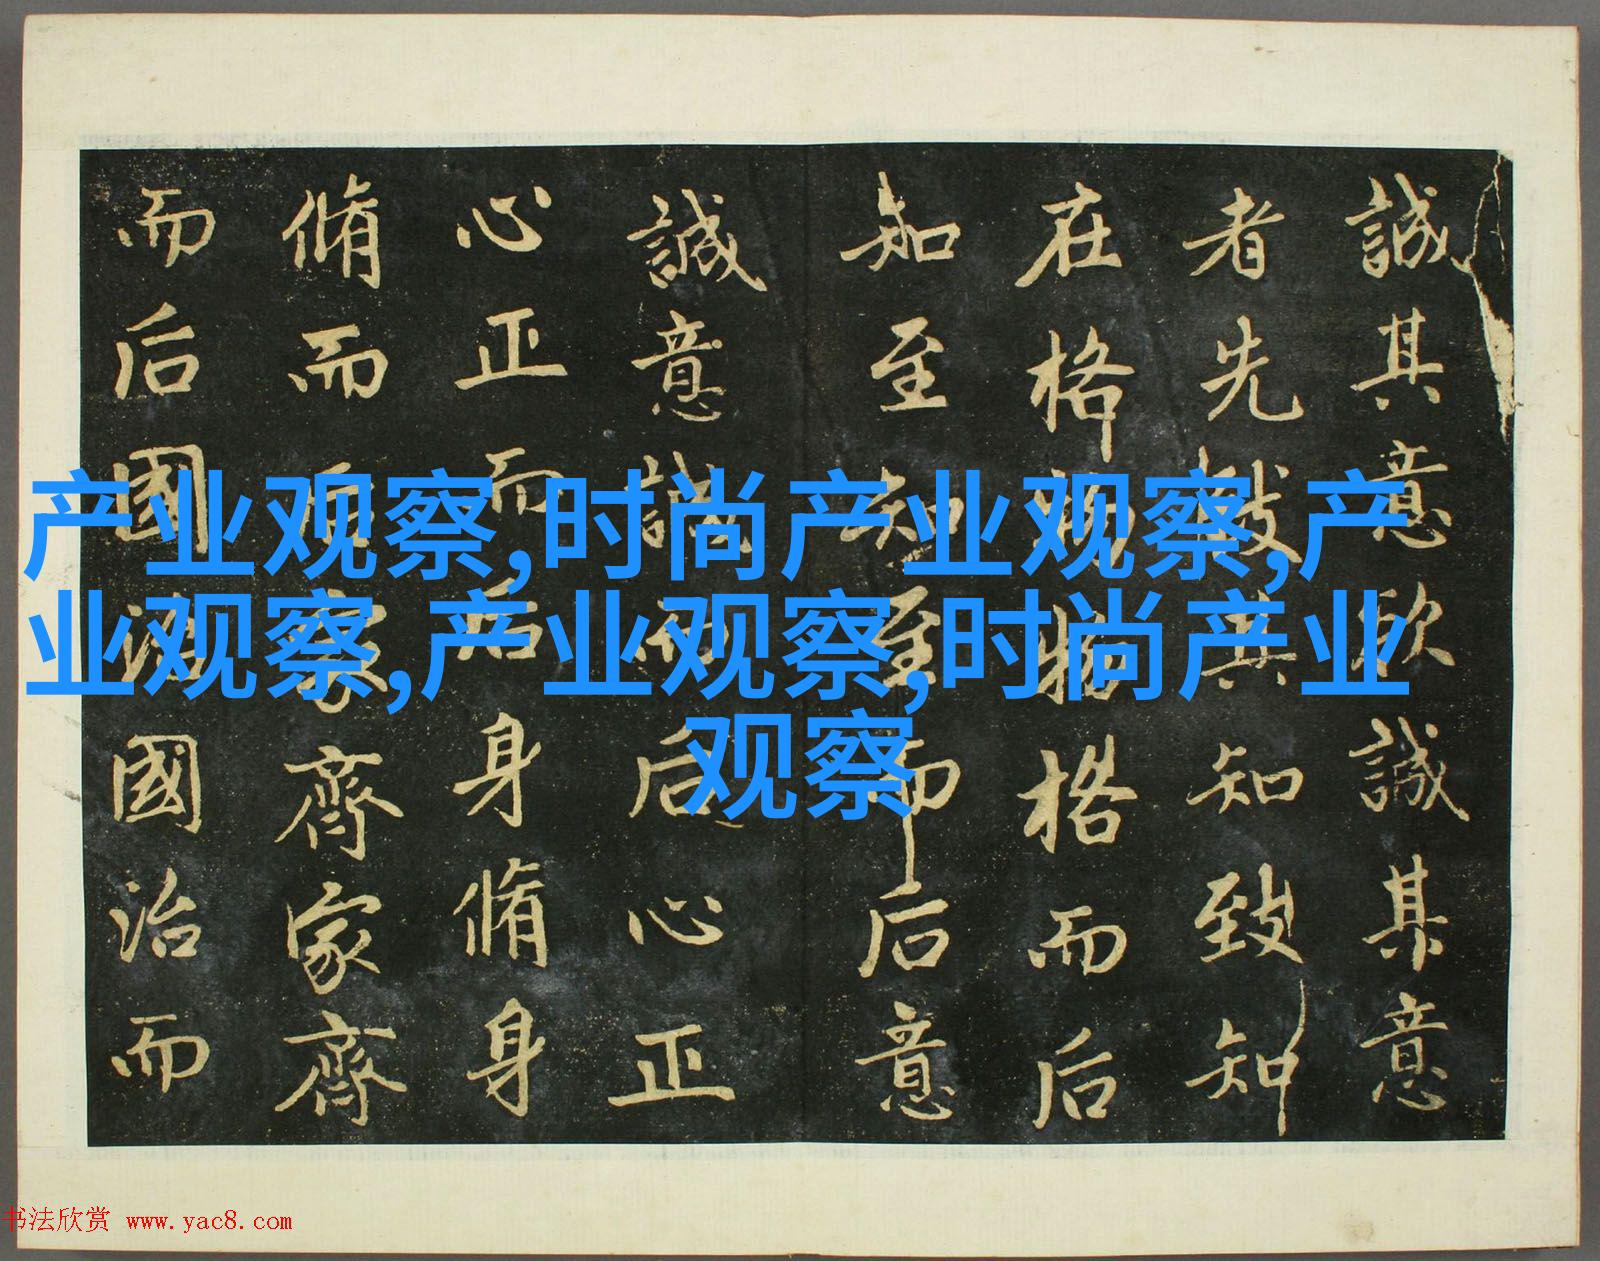 誠其意欲誠其意
者先致其知致知
在格物物格而后
知至知至而后意
誠意誠而后心正
心正而后身脩身
脩而后家齊家齊
而后國治國治而
产业观察,时尚产业观察,产
业观察,产业观察,时尚产业
观察
书法欣赏 www.yac8.com